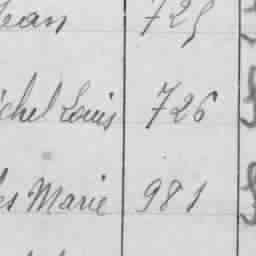 Jean 725
chel Louis 726
es Marie 981